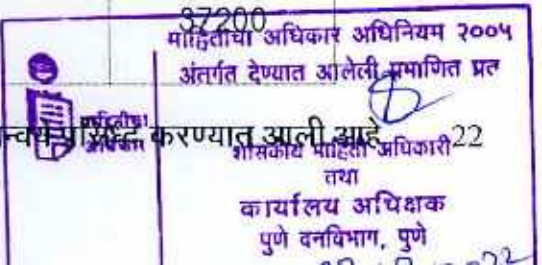 37200
माहितीचा अधिकार अधिनियम २००५
अंतर्गत देण्यात आलेली प्रमाणित प्रत
माहितीचा
अधिकार
करण्यात आली आहे 22
शासकीय माहिती अधिकारी
तथा
कार्यालय अधिक्षक
पुणे वनविभाग, पुणे